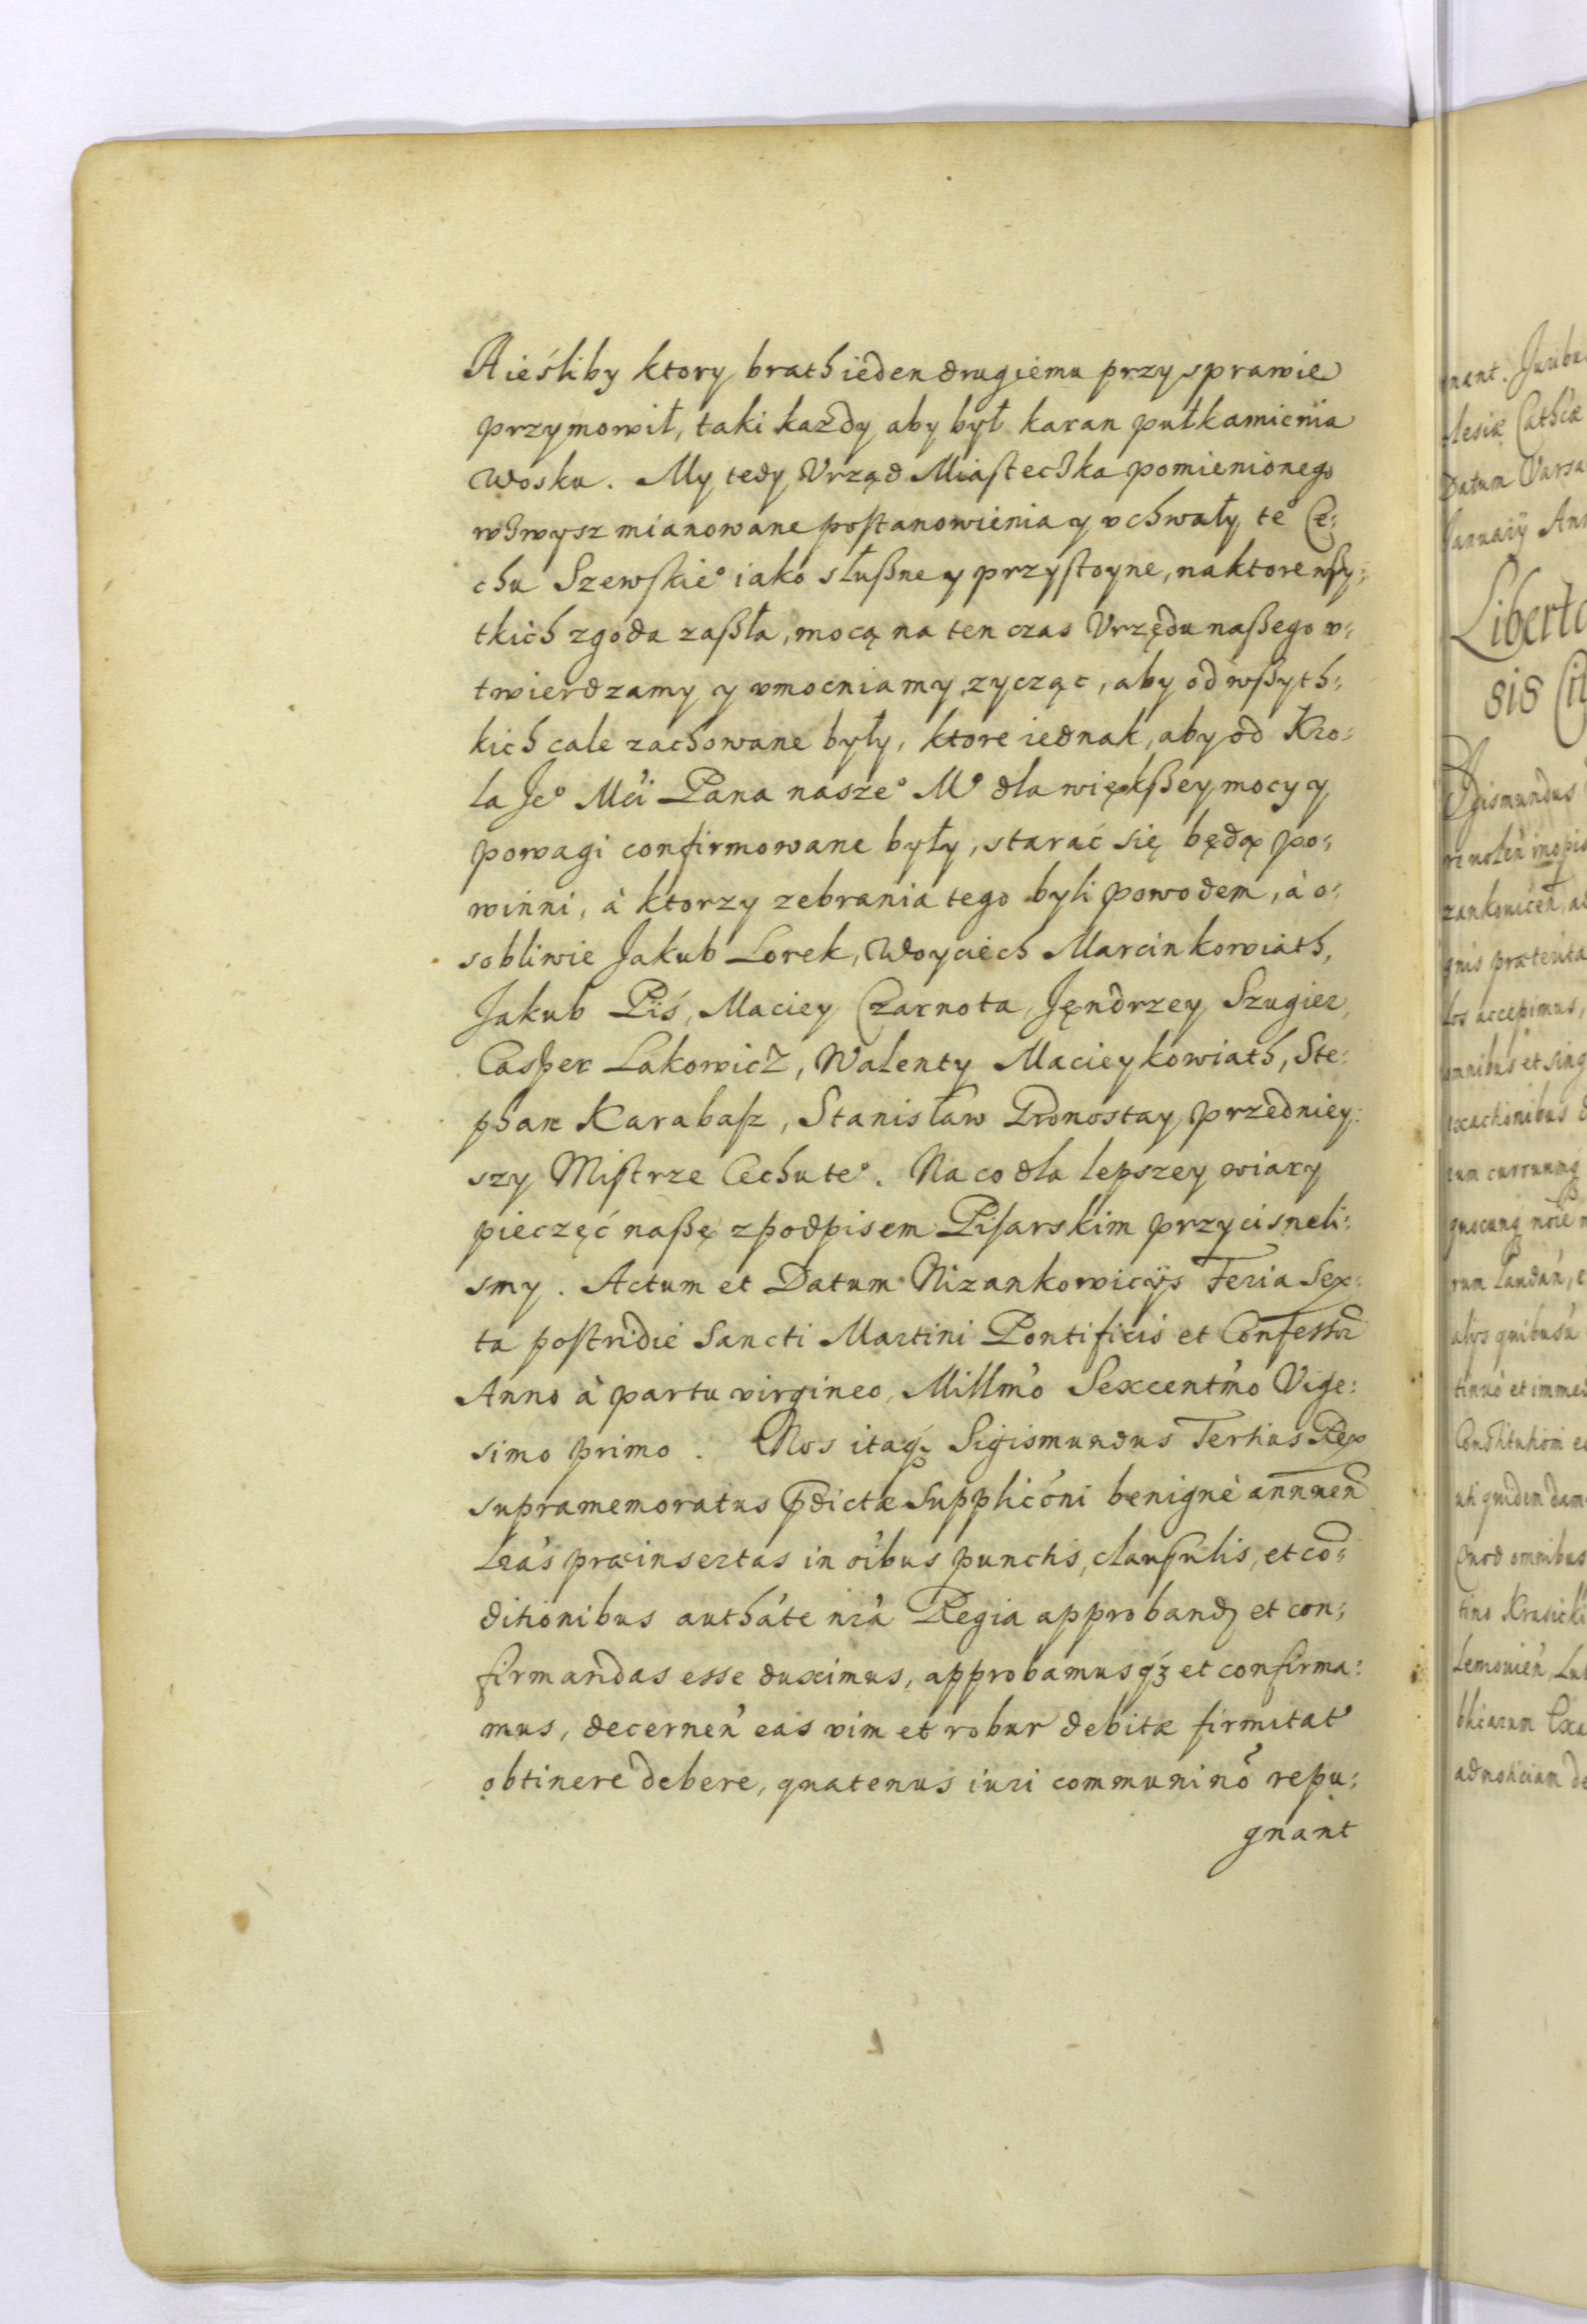 A ieśliby ktory brath ieden drugiemu przy sprawie
przymowił, taki każdy aby był karan pułkamienia
wosku. My tedy Vrząd Miasteczka pomienionego
wzwysz mianowane postanowienia y vchwały te° Ce:
chu Szewskie° iako słußne y przystoyne, na ktore wßy:
tkich zgoda zaßła, mocą na ten czas Vrzędu naßego v:
twierdzamy y vmocniamy, zycząc, aby od wßyth:
kich cale zachowane były, ktore iednak, aby od Kro:
la Je° Mći Pana nasze° M° dla więkßey mocy y
powagi confirmowane były, starać się będą po:
winni, à ktorzy zebrania tego byli powodem, à o:
sobliwie Jakub Lorek, Woyciech Marcinkowiath,
Jakub Piś, Maciey Czarnota, Jędrzey Szugier,
Casper Lakowicz, Walenty Macieykowiath, Ste:
phan Karabasz, Stanisław Pronostay przedniey:
szy Mistrze Cechu te°. Na co dla lepszey wiary
pieczęć naßę z podpisem Pisarskim przycisneli:
smy. Actum et Datum Nizankowicÿs Feria Sex:
ta postridie Sancti Martini Pontificis et Confessor
Anno à partu virgineo, Millm̃o Sexcentm̃o Vige:
simo primo. Nos itaq3 Sigismundus Tertius Rex
supramemoratus p̃dictæ Supplicõni benignè annuen
Lrãs præinsertas in oĩbus punctis, clausulis, et co:
ditionibus authãte nrã Regia approband et con:
firmandas esse duximus, approbamusq3 et confirma:
mus, decernen̉ eas vim et robur debitæ firmitat
obtinere debere, quatenus iuri communi nõ repu:
gnant
nant.
Datum
January
Liberta
sis
omnibus et sing
Quod omnibus